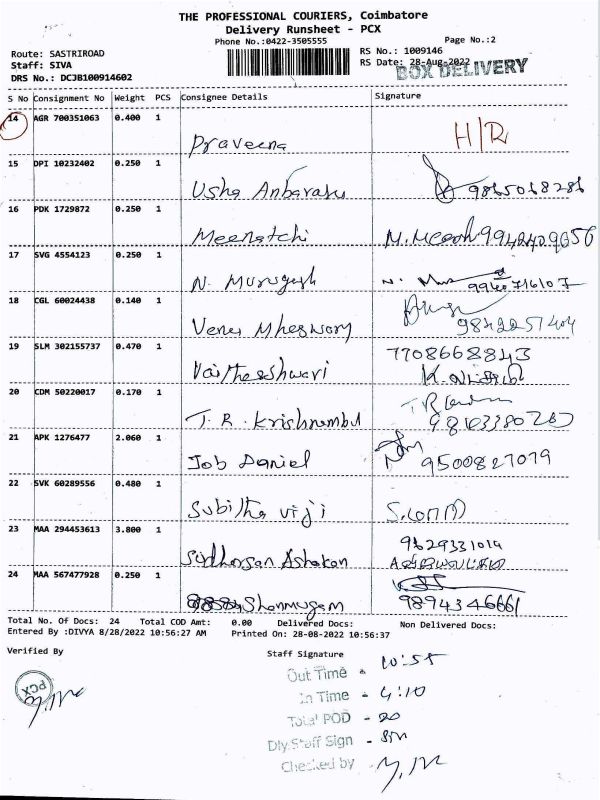 THE PROFESSIONAL COURIERS, Coimbatore
Delivery Runsheet - PCX
Phone No.:0422-3505555
Page No.:2
Route: SASTRIROAD
RS No.: 1009146
Staff: SIVA
RS Date: 28-Aug-2022
DRS No.: DCJB100914602
BOX DELIVERY
S No Consignment No Weight PCS Consignee Details Signature
14 AGR 700351063 0.400 1
Praveena H/R
15 DPI 10232402 0.250 1
Usha Anbarasu 9865068286
16 PDK 1729872 0.250 1
Meenatchi M. Meena 9942409656
17 SVG 4554123 0.250 1
N. Murugesh 9940716107
18 CGL 60024438 0.140 1
Venu Mheswary 9842257404
19 SLM 302155737 0.470 1
7708668843
Vaitheeshwari
20 CDM 50220017 0.170 1
T. R. Krishnambul
21 APK 1276477 2.060 1
Job Daniel 9500827079
22 SVK 60289556 0.480 1
Subitha viji
23 MAA 294453613 3.800 1
9629331014
Sudharsan Ashokan
24 MAA 567477928 0.250 1
Shanmugam 9894346661
Total No. Of Docs: 24 Total COD Amt: 0.00 Delivered Docs: Non Delivered Docs:
Entered By :DIVYA 8/28/2022 10:56:27 AM Printed On: 28-08-2022 10:56:37
Verified By Staff Signature
PCX
Out Time - 10:55
In Time - 4:10
Total POD - 20
Dly.Staff Sign -
Checked by -